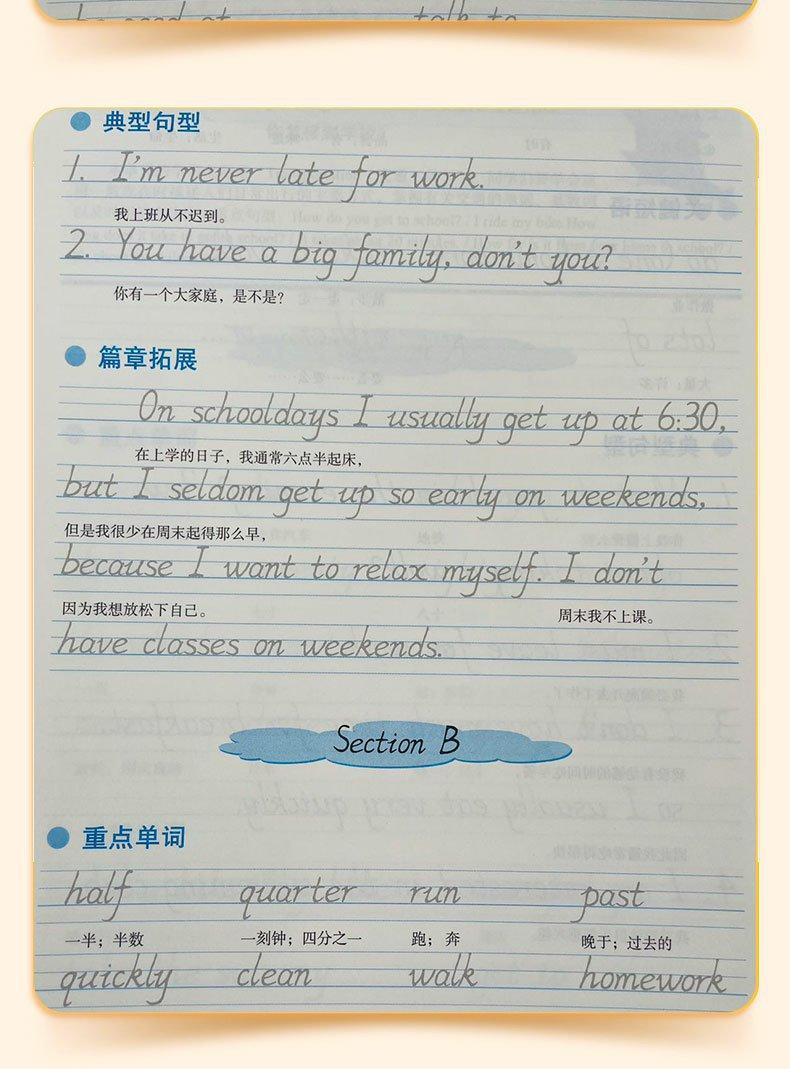 talk to
典型句型
1. I'm never late for work.
我上班从不迟到。
2. You have a big family, don't you?
你有一个大家庭，是不是？
篇章拓展
On schooldays I usually get up at 6:30,
在上学的日子，我通常六点半起床，
but I seldom get up so early on weekends,
但是我很少在周末起得那么早，
because I want to relax myself. I don't
因为我想放松下自己。 周末我不上课。
have classes on weekends.
Section B
重点单词
half quarter run past
一半；半数 一刻钟；四分之一 跑；奔 晚于；过去的
quickly clean walk homework